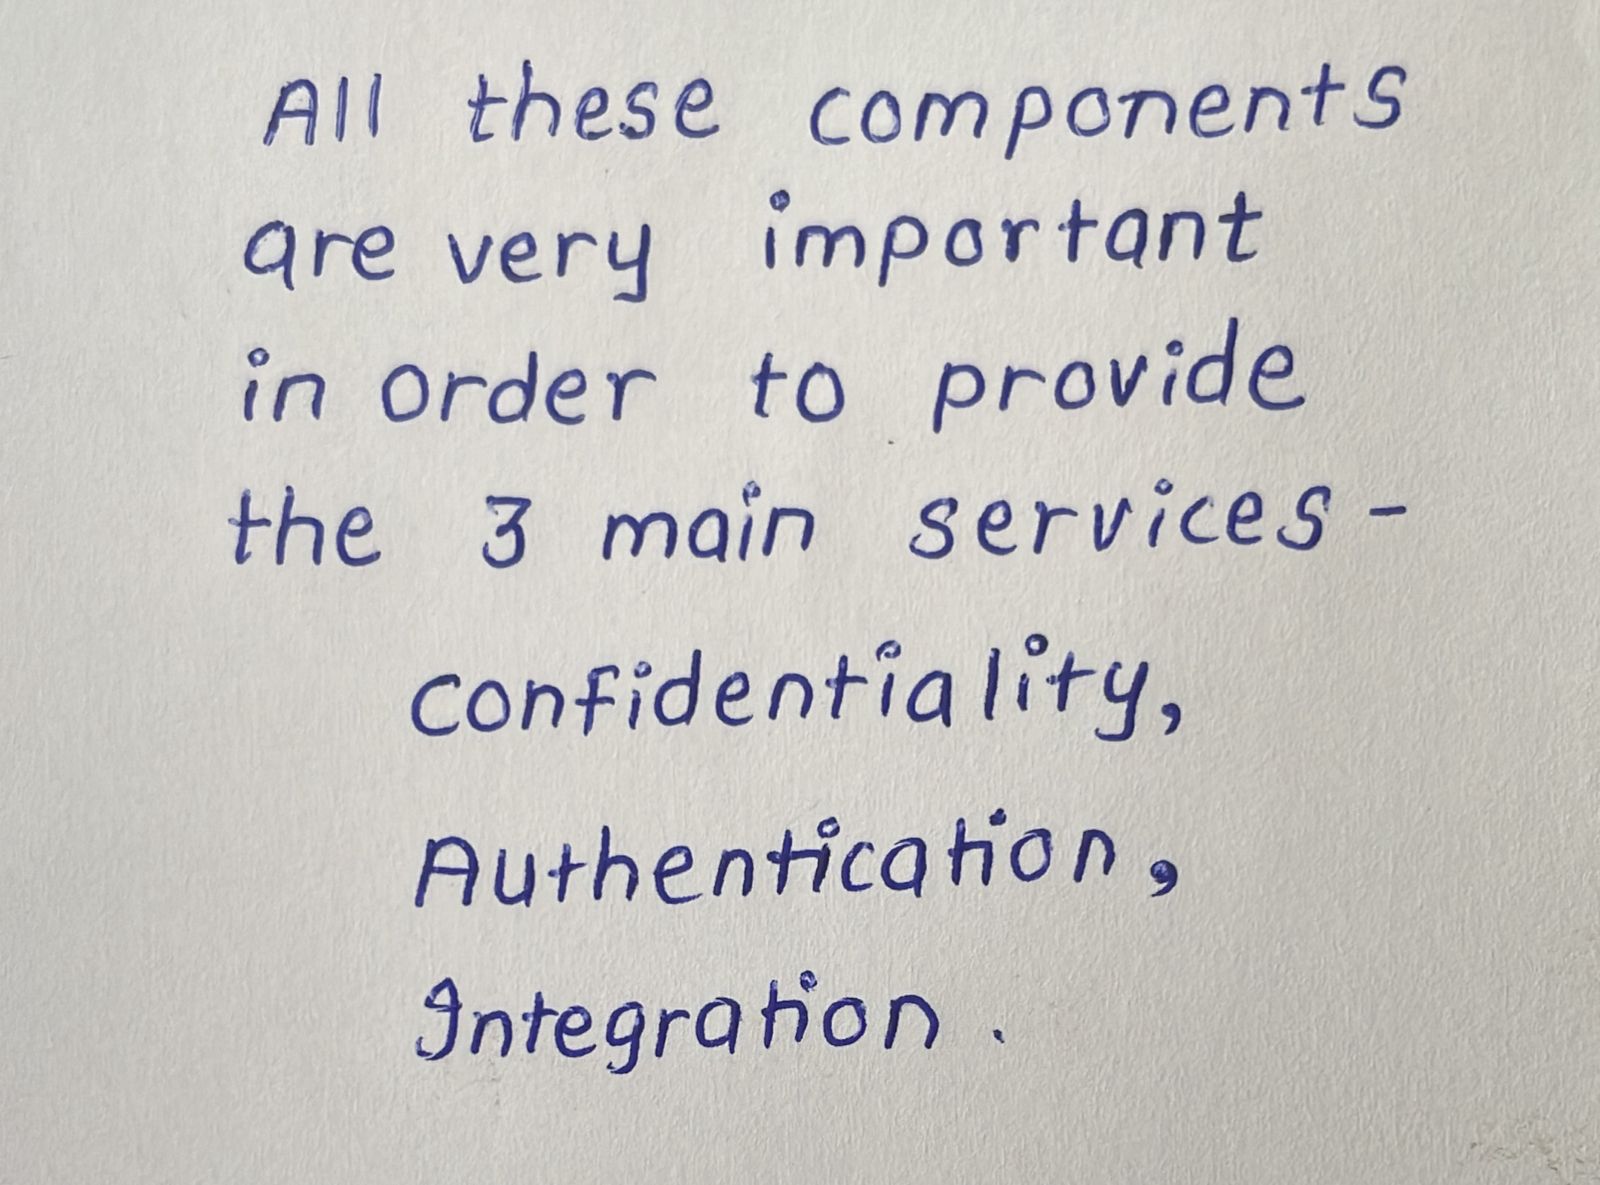 All these components
are very important
in order to provide
the 3 main services -
confidentiality,
Authentication,
Integration.